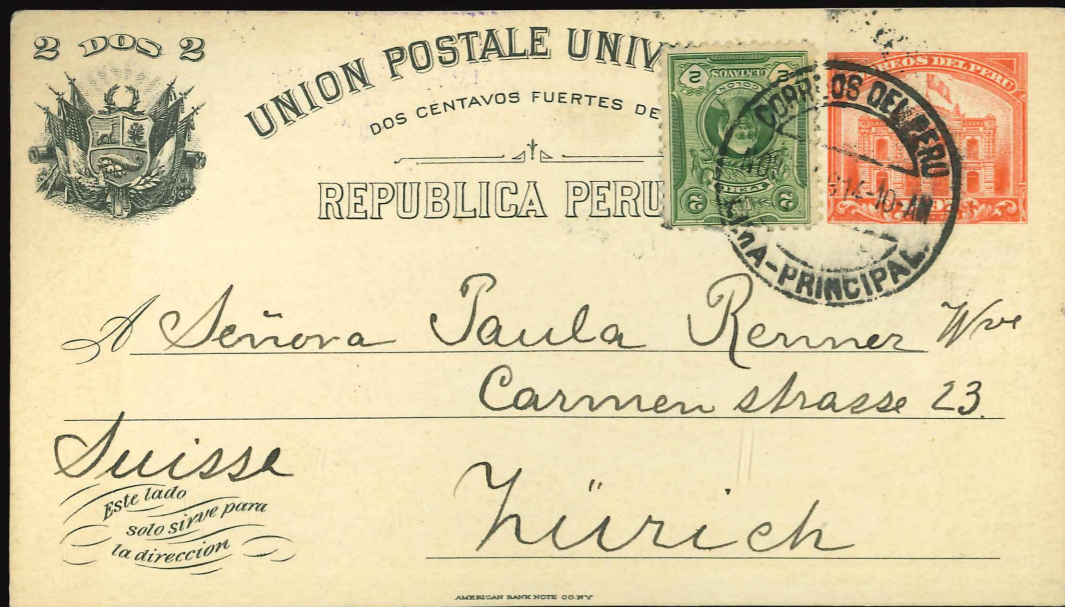 2 DOS 2
UNION POSTALE UNIV
DOS CENTAVOS FUERTES DE
REPUBLICA PERU
2 CENTAVOS 2
COLON
2 2
CORREOS DEL PERU
CORREOS DEL PERU
14-10-AM
LIMA-PRINCIPAL
A Señora Paula Renner Wve
Carmen strasse 23.
Suisse
Zürich
Este lado
solo sirve para
la direccion
AMERICAN BANK NOTE CO. NY